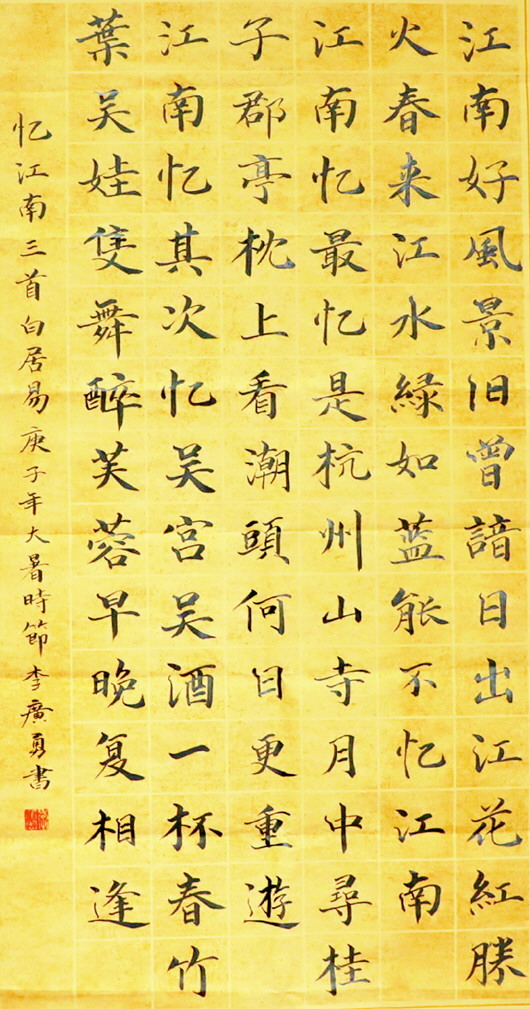 江南好風景旧曾諳日出江花紅勝
火春来江水緑如蓝能不忆江南
江南忆最忆是杭州山寺月中尋桂
子郡亭枕上看潮頭何日更重遊
江南忆其次忆吴宫吴酒一杯春竹
葉吴娃隻舞醉芙蓉早晚复相逢
忆江南三首白居易庚子年大暑時節李廣勇書